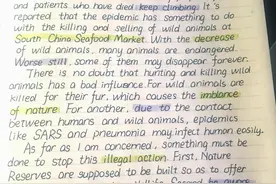 and patients who have died keep climbing. It's
reported that the epidemic has something to do
with the killing and selling of wild animals at
South China Seafood Market. With the decrease
of wild animals, many animals are endangered.
Worse still, some of them may disappear forever.
There is no doubt that hunting and killing wild
animals has a bad influence. For wild animals are
killed for their fur, which causes the imblance
of nature. For another, due to the contact
between humans and wild animals, epidemics
like SARS and pneumonia may infect human easily.
As far as I am concerned, something must be
done to stop this illegal action. First, Nature
Reserves are supposed to be built so as to offer